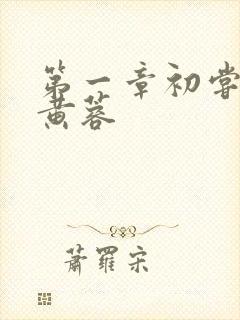 第一章初尝
黄蓉
萧罗宋